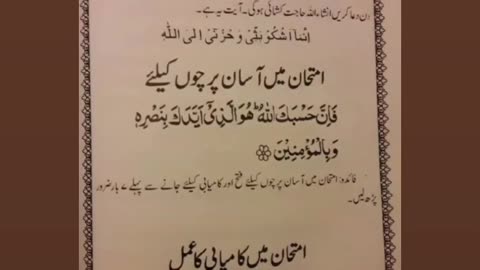 دن دعا کریں انشاءاللہ حاجت کشائی ہوگی۔ آیت یہ ہے۔
اِنَّمَا اَشْكُوْ بَثِّیْ وَ حُزْنِیْ اِلَى اللّٰهِ
امتحان میں آسان پرچوں کیلئے
فَاِنَّ حَسْبَكَ اللّٰهُ ؕ هُوَ الَّذِیْۤ اَیَّدَكَ بِنَصْرِهٖ
وَ بِالْمُؤْمِنِیْنَ
فائدہ: امتحان میں آسان پرچوں کیلئے فتح اور کامیابی کیلئے جانے سے پہلے ۷ بار ضرور
پڑھ لیں۔
امتحان میں کامیابی کا عمل